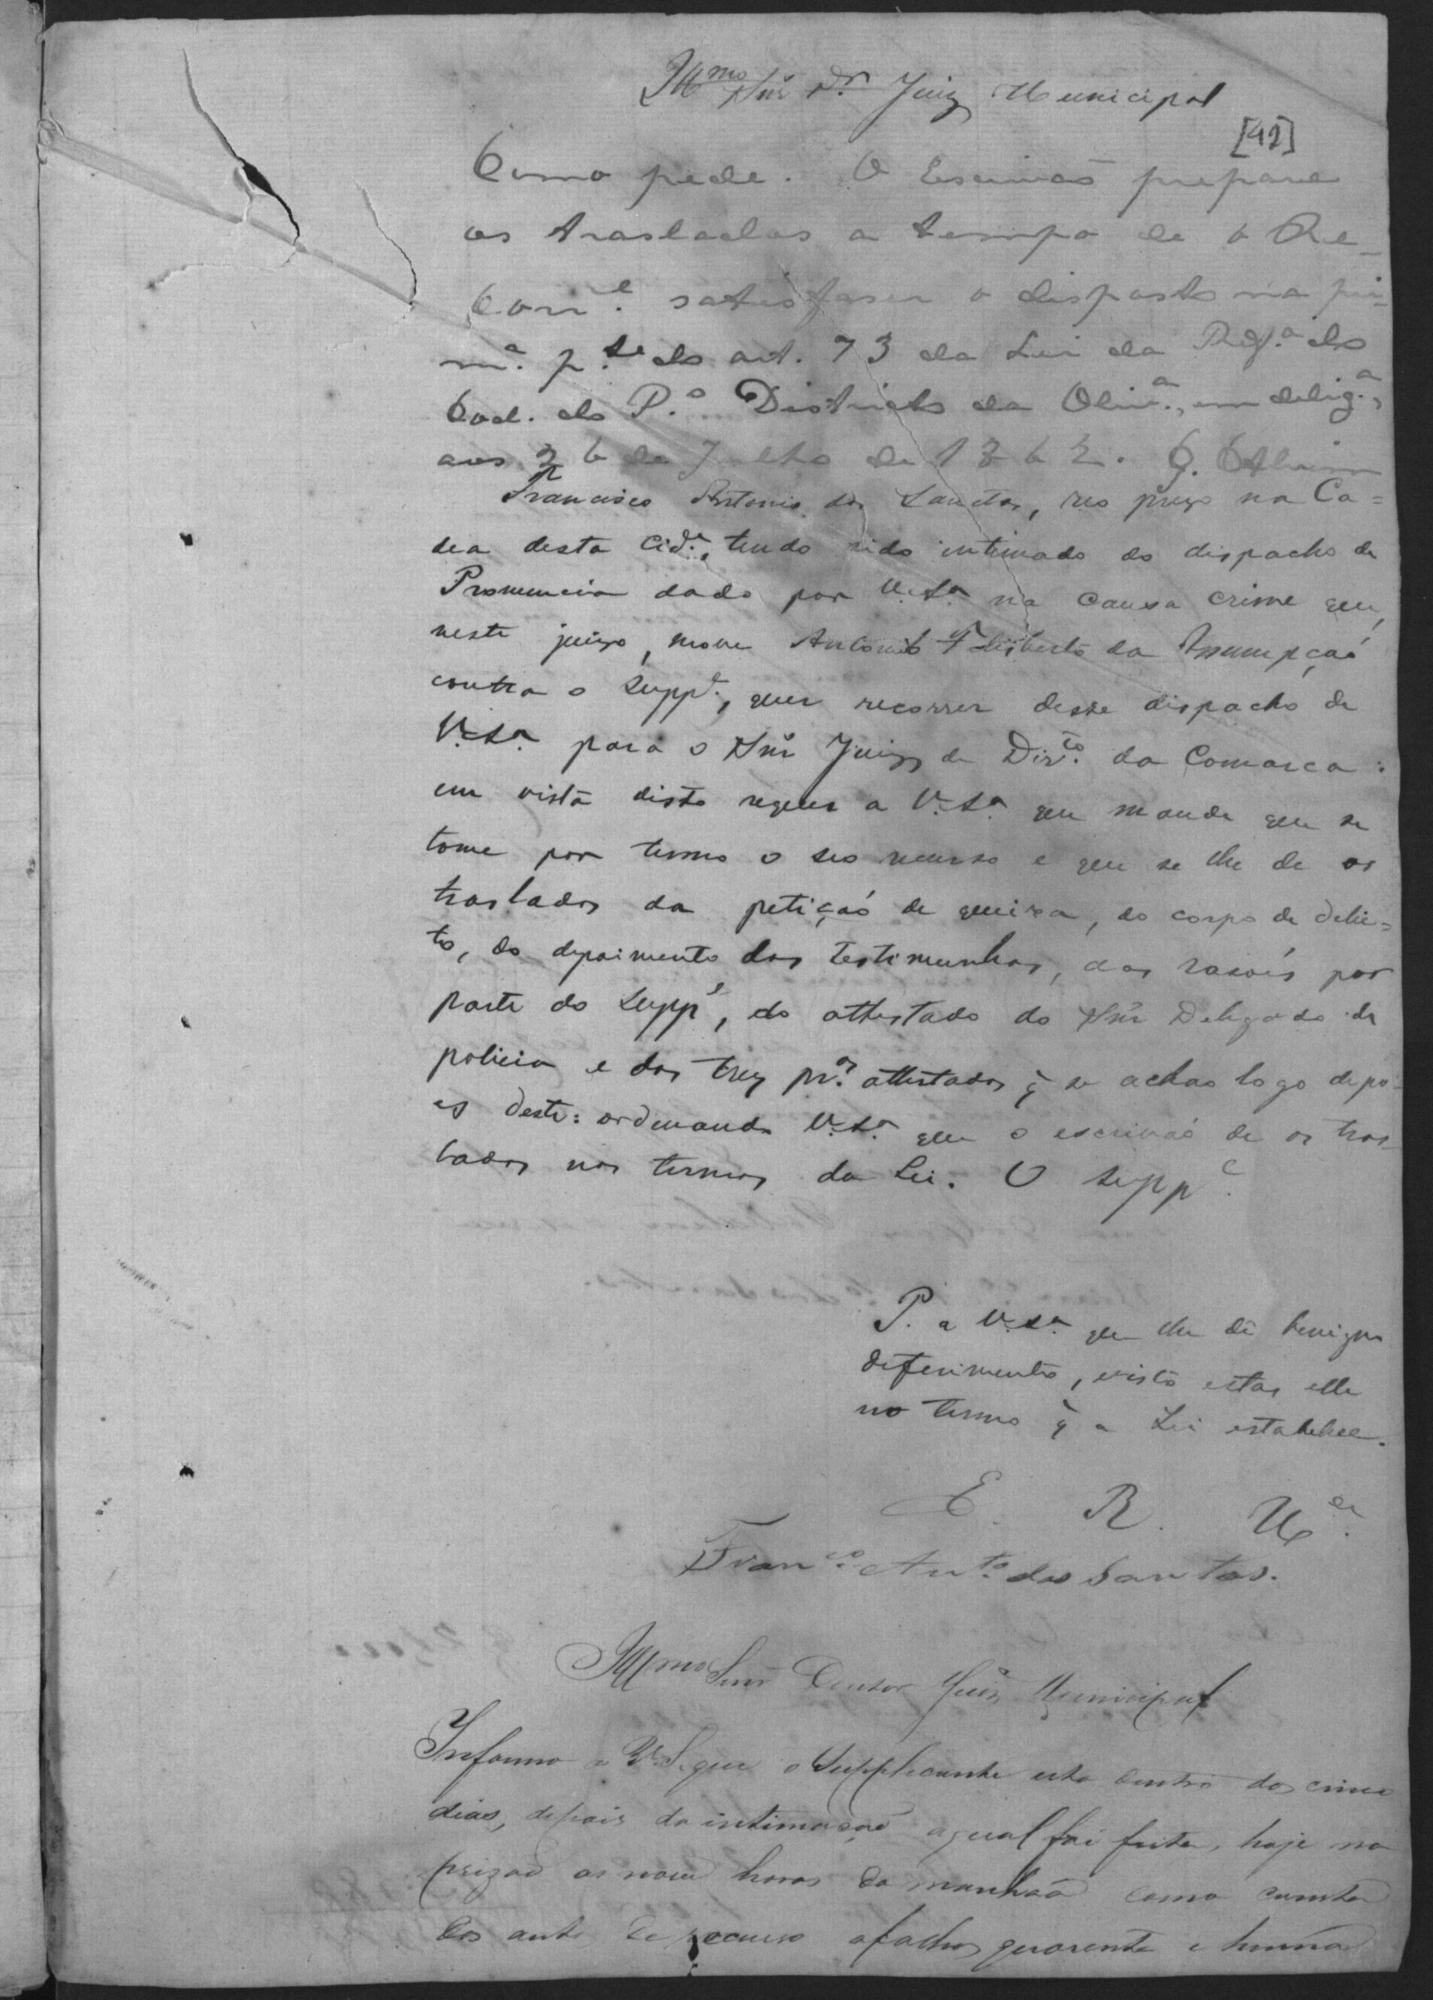 Illmo Snr Dr Juiz Municipal
[42]
Como pede. O Escrivaõ prepare
os traslados a tempo de o Re-
corr.e satisfaser o disposto na pri-
m.a p.te do art. 73 da Lei da Ref.a do
Cod. do P.o Districto da Oliv.a, em delig.a,
aos 26 de Julho de 1862.
Francisco Antonio dos Sanctos, reo prezo na Ca=
dea desta Cid.e, tendo sido intimado do dispacho de
Pronuncia dado por V.Sa. na causa crime que,
neste juizo, move Antonio Filisberto da Assumpçaõ
contra o Supp.e, quer recorrer desse dispacho de
V.Sa. para o Snr Juiz de Dir.to da Comarca:
em vista disto requer a V.Sa. que mande que se
tome por termo o seo recurso e que se lhe de os
traslados da petiçaõ de queixa, do corpo de delic=
to, do depoimento das testimunhas, das rasoẽs por
parte do Supp.e, do attestado do Snr Delegado de
policia e dos trez pr.os attestados q̃ se achao logo depo-
es deste: ordenando V.Sa. que o escrivaõ de os tras-
lados nos termos da Lei. O Supp.e
P. a V.Sa. que lhe dê benigno
deferimento, visto estar elle
no termo q̃ a Lei estabelece.
E. R. M.ce
Fran.co Ant.o dos Santos.
Illmo Snr Doutor Juis Municipal
Informo a V.S. que o Supplicante esta dentro dos cinco
dias, depois da intimaçaõ a qual foi feita, hoje na
prizaõ as nove horas da manhaã como consta
dos autos de recurso a folhas quarenta e huma